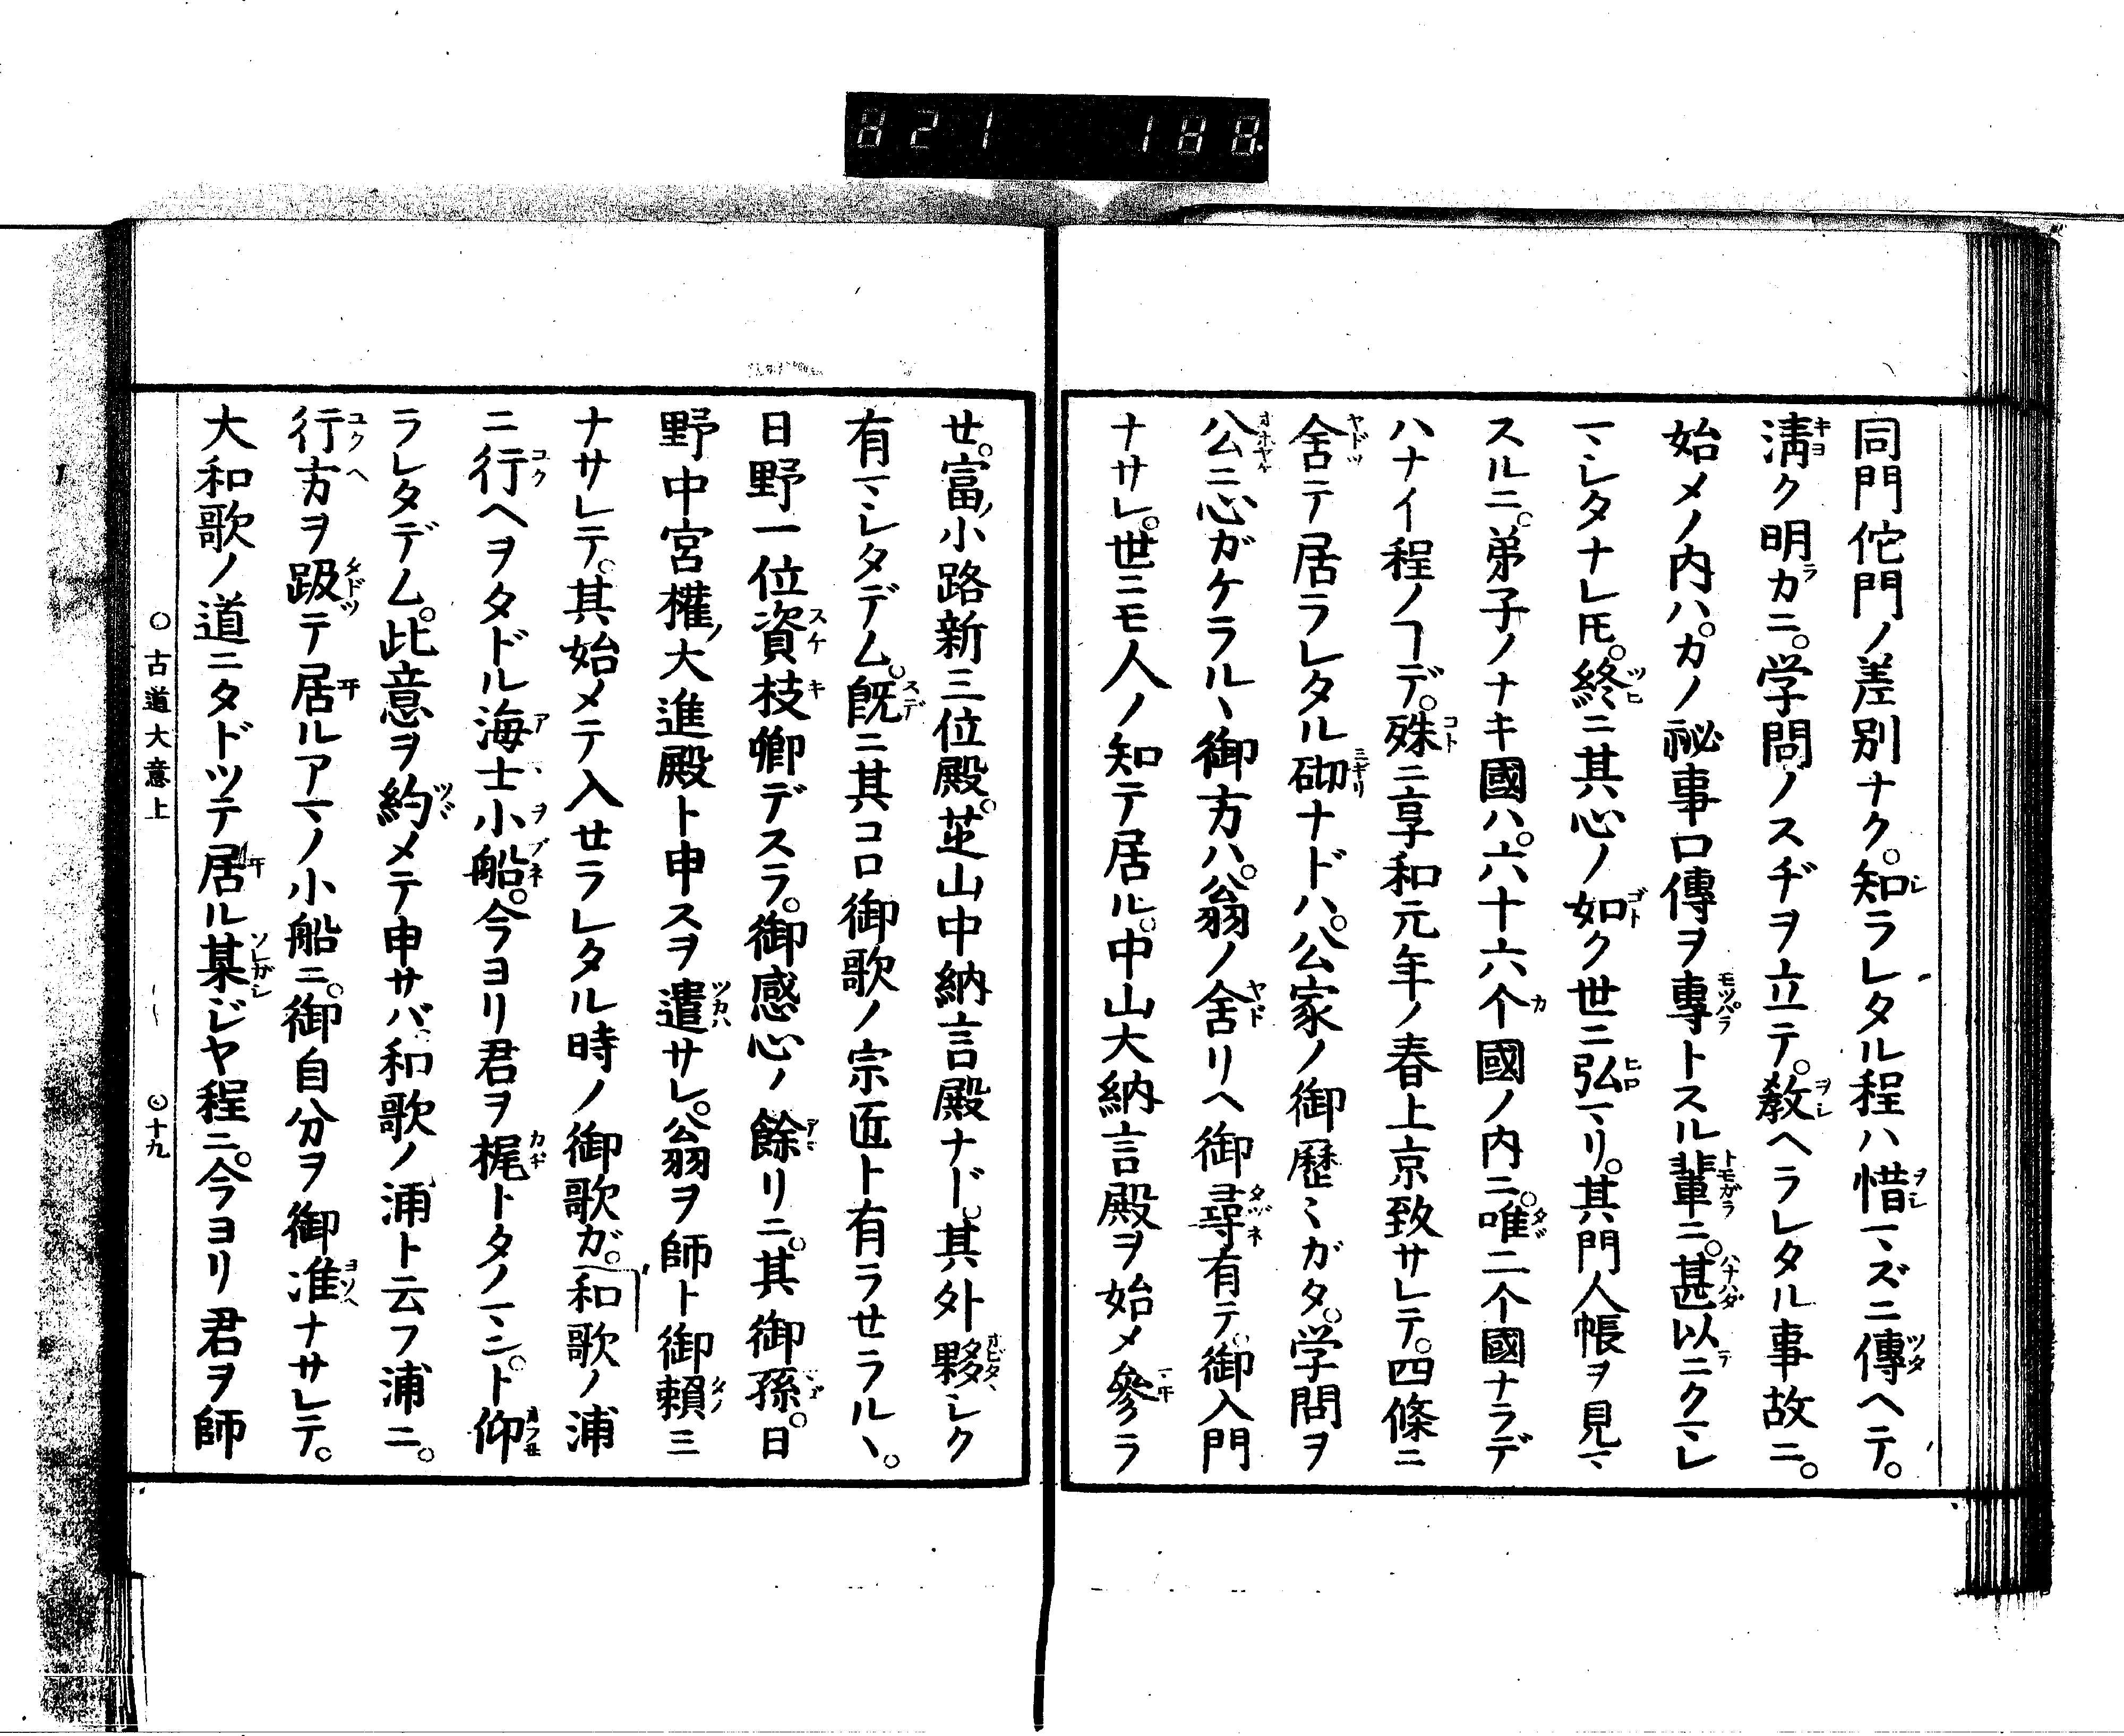 821 188
同門佗門ノ差別ナク。知ラレタル程ハ惜マズニ傳ヘテ。
淸ク明カニ。学問ノスヂヲ立テ。教ヘラレタル事故ニ。
始メノ内ハ。カノ祕事口傳ヲ專トスル輩ニ。甚以ニクマレ
マシタナレ𪜈。終ニ其心ノ如ク世ニ弘マリ。其門人帳ヲ見マ
スルニ。弟子ノナキ國ハ。六十六个國ノ内ニ。唯二个國ナラデ
ハナイ程ノヿデ。殊ニ享和元年ノ春上京致サレテ。四條ニ
舍テ居ラレタル砌ナドハ。公家ノ御歷ミガタ。学問ヲ
公ニ心ガケラルヽ御方ハ。翁ノ舍リヘ御尋有テ。御入門
ナサレ。世ニモ人ノ知テ居ル。中山大納言殿ヲ始メ參ラ
セ。富ノ小路新三位殿。芝山中納言殿ナド。其外夥シク
有マシタデム。既ニ其コロ御歌ノ宗匠ト有ラセラルヽ。
日野一位資枝卿デスラ。御感心ノ餘リニ。其御孫。日
野中宮權ノ大進殿ト申スヲ遣サレ。公翁ヲ師ト御賴ミ
ナサレテ。其始メテ入セラレタル時ノ御歌ガ。和歌ノ浦
ニ行ヘヲタドル海士小船。今ヨリ君ヲ梶トタノマン。ト仰
ラレタデム。此意ヲ約メテ申サバ。和歌ノ浦ト云フ浦ニ。
行方ヲ趿テ居ルアマノ小船ニ。御自分ヲ御准ナサレテ。
大和歌ノ道ニタドツテ居ル某ジヤ程ニ。今ヨリ君ヲ師
○古道大意上 ○十九